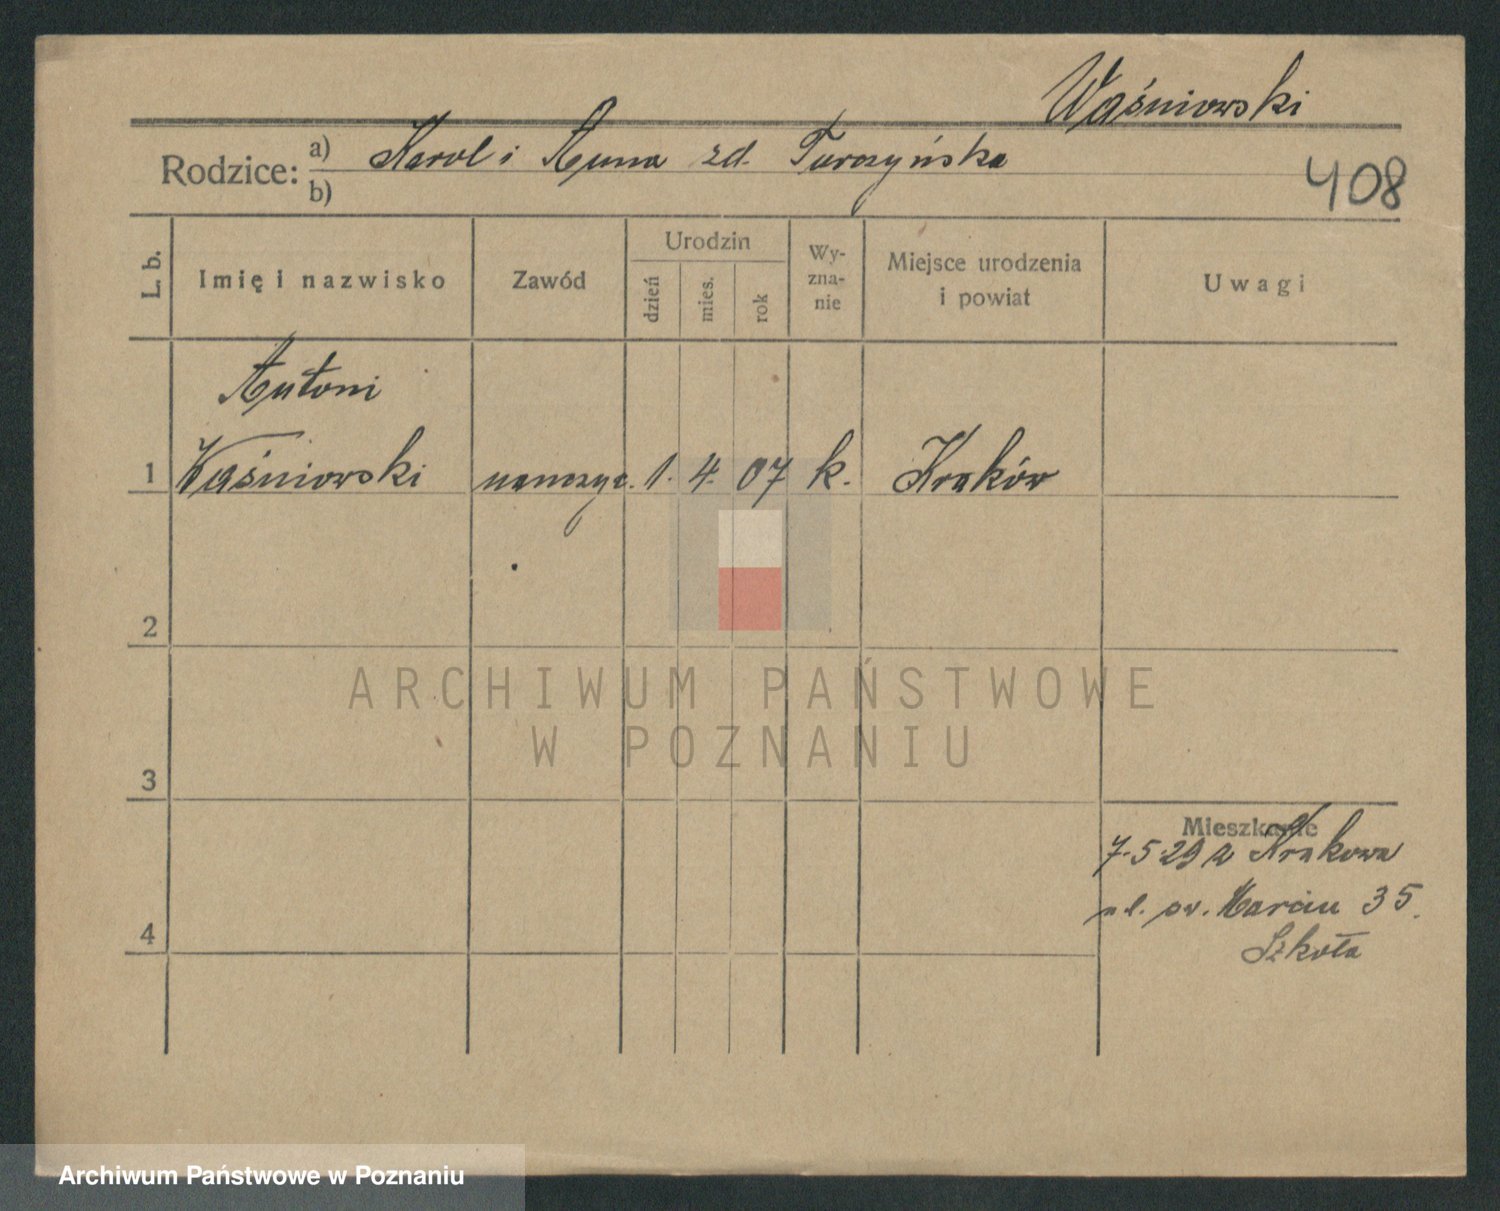 Waśniowski
Rodzice: a) Karol i Anna zd. Turczyńska
b)
408
L. b.
Imię i nazwisko
Zawód
Urodzin
dzień
mies.
rok
Wy-
zna-
nie
Miejsce urodzenia
i powiat
Uwagi
Antoni
1 Waśniowski nauczyc. 1. 4. 07 k. Kraków
2
3
4
Mieszkanie
7.5.29 z Krakowa
ul. św. Marcin 35.
Szkoła
ARCHIWUM PAŃSTWOWE
W POZNANIU
Archiwum Państwowe w Poznaniu